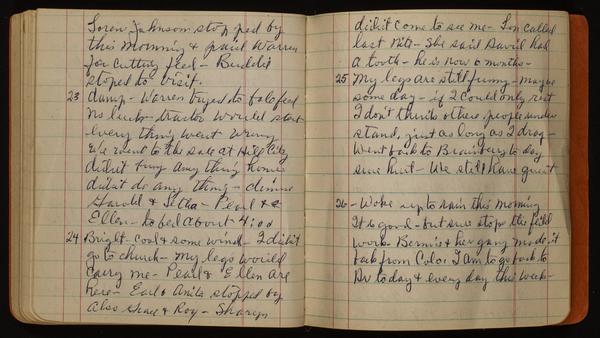 Loren Johnson stopped by
this morning & paid Warren
for cutting feed - Buddie
stoped to visit.
23 damp - Warren tryed to bale feed
no luck - tractor would start
every thing went wrong
& We went to the sale at Hill City
didn't buy any thing home
didn't do any thing - dinner
Harold & - Pearl &
Ellen - to bed about 4:00
24 Bright - cool & some wind - I didn't
go to church - my legs would
carry me - Pearl & Ellen are
here - Earl & Anita stopped by
Also Grace & Roy - Sharyn
didn't come to see me - Lon called
last nite - She said David had
a tooth - he is now 6 months -
25 My legs are still funny - maybe
some day - if I could only rest
I don't think other people under
stand, just as long as I drag -
Went back to to day
sure hurt - We still have guest
26 - Woke up to rain this morning
It is good - but sure stops the field
work. Bernis & her gang made it
back from Colo. I am to go back to
Dr today & every day this week -